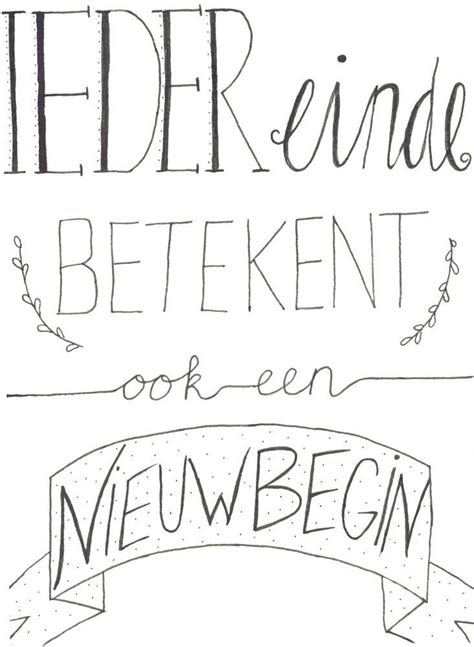 IEDER einde
BETEKENT
ook een
NIEUW BEGIN